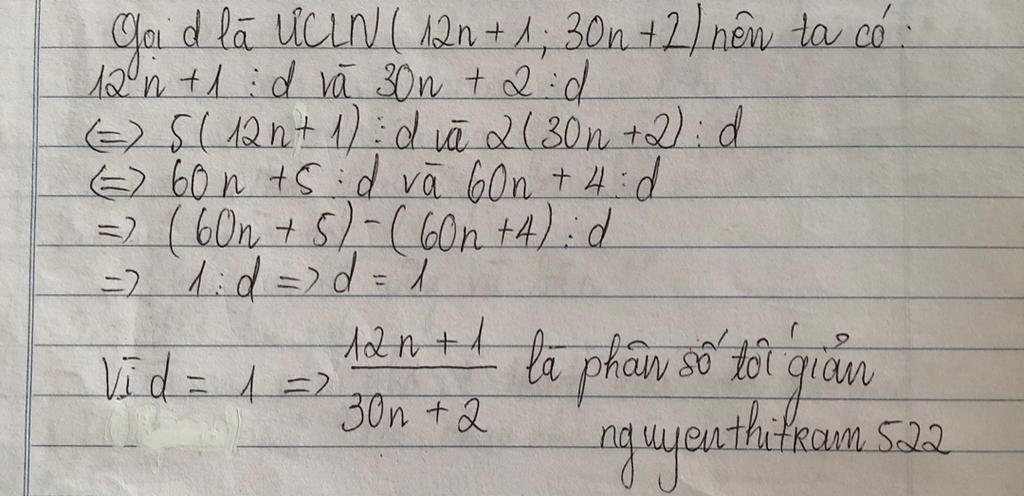 Gọi d là ƯCLN(12n+1; 30n+2) nên ta có:
12n+1 ⋮ d và 30n + 2 ⋮ d
<=> 5(12n+1) ⋮ d và 2(30n+2) ⋮ d
<=> 60n +5 ⋮ d và 60n + 4 ⋮ d
=> (60n + 5) - (60n+4) ⋮ d
=> 1 ⋮ d => d = 1
Vì d = 1 => (12n + 1)/(30n + 2) là phân số tối giản
nguyenthitram522